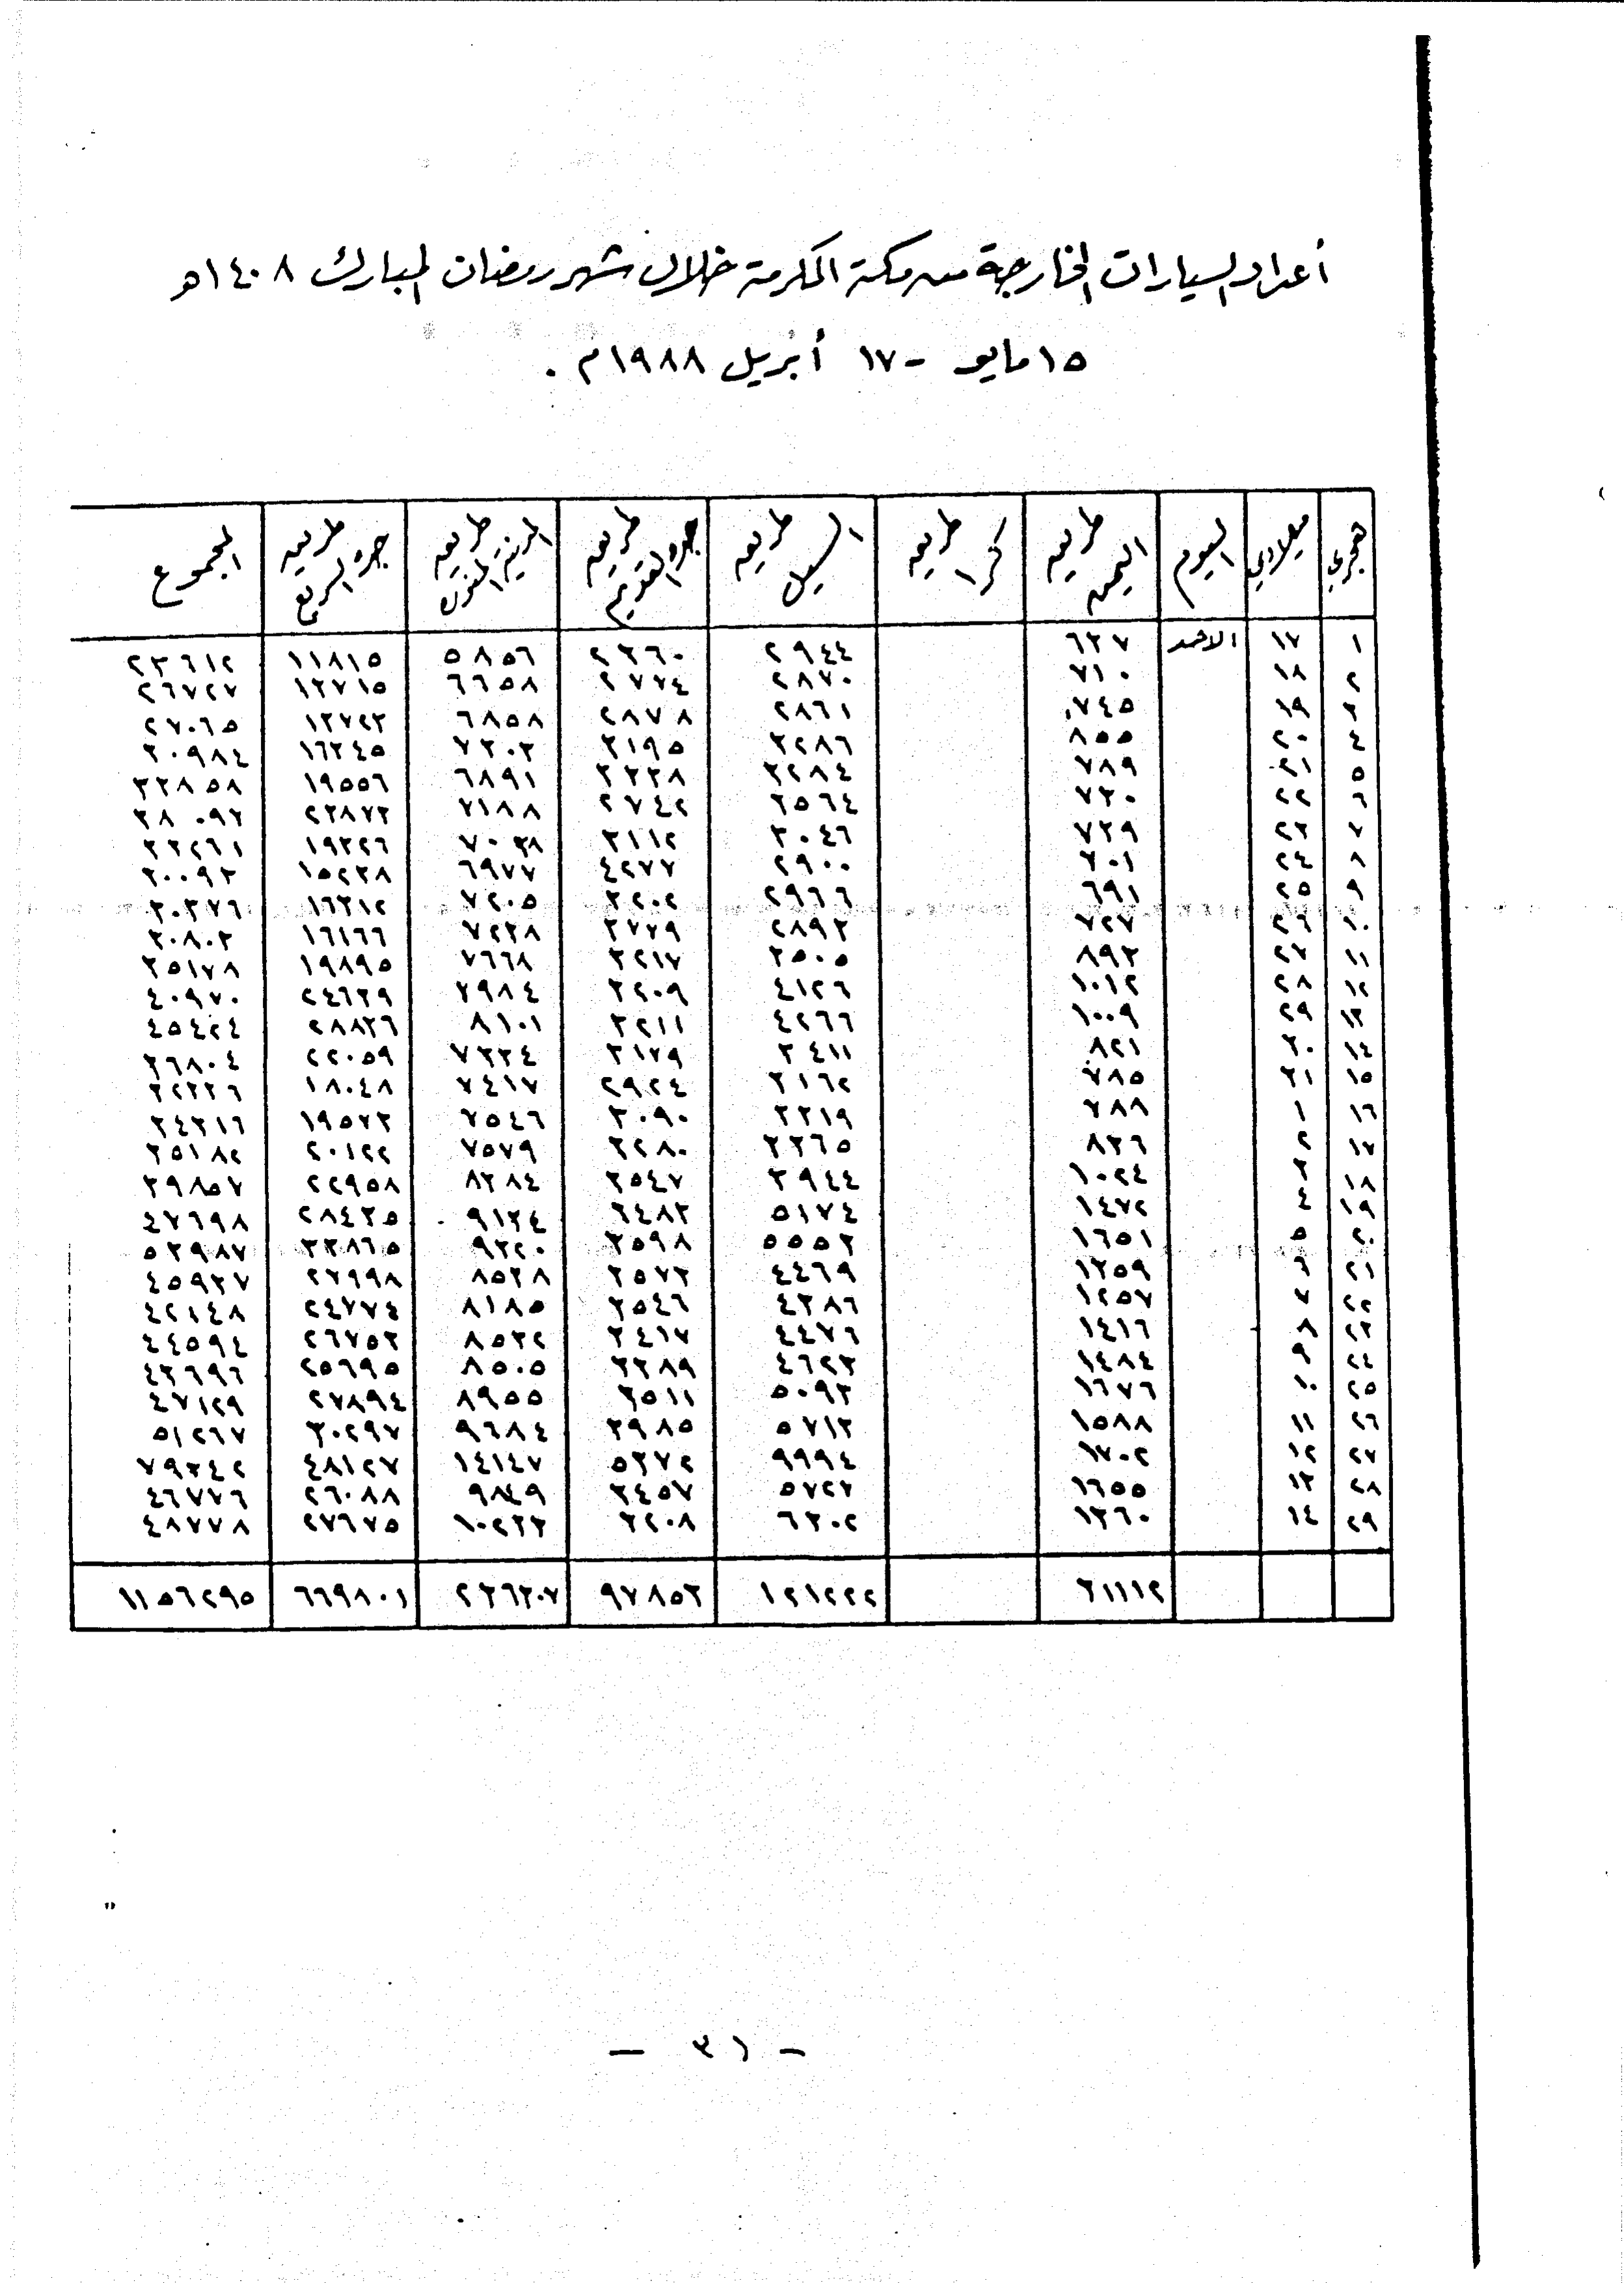 أعداد السيارات الخارجة من مكة المكرمة خلال شهر رمضان المبارك ١٤٠٨هـ
١٥ مايو - ١٧ أبريل ١٩٨٨م .
هجري ميلادي اليوم طريق اليمن طريق كرا طريق السيل طريق جده القديم طريق المدينة المنوره طريق جده السريع المجموع
١ ١٧ الاحد ٦٣٧ ٢٩٤٤ ٢٣٦٠ ٥٨٥٦ ١١٨١٥ ٢٣٦١٢
٢ ١٨ ٧١٠ ٢٨٧٠ ٢٧٧٤ ٦٦٥٨ ١٣٧١٥ ٢٦٧٢٧
٣ ١٩ ٧٤٥ ٢٨٦١ ٢٨٧٨ ٦٨٥٨ ١٣٧٢٣ ٢٧٠٦٥
٤ ٢٠ ٨٥٥ ٣٢٨٦ ٣١٩٥ ٧٣٠٣ ١٦٣٤٥ ٣٠٩٨٤
٥ ٢١ ٧٨٩ ٣٢٨٤ ٣٣٣٨ ٦٨٩١ ١٩٥٥٦ ٣٣٨٥٨
٦ ٢٢ ٧٣٠ ٣٥٦٤ ٢٧٤٢ ٧١٨٨ ٢٣٨٧٣ ٣٨٠٩٧
٧ ٢٣ ٧٣٩ ٣٠٤٦ ٣١١٢ ٧٠٣٨ ١٩٣٢٦ ٣٣٢٦١
٨ ٢٤ ٧٠١ ٢٩٠٠ ٤٢٧٧ ٦٩٧٧ ١٥٢٣٨ ٣٠٠٩٣
٩ ٢٥ ٦٩١ ٢٩٦٦ ٣٢٠٢ ٧٢٠٥ ١٦٣١٢ ٣٠٣٧٦
١٠ ٢٦ ٧٢٧ ٢٨٩٣ ٣٧٧٩ ٧٢٣٨ ١٦١٦٦ ٣٠٨٠٣
١١ ٢٧ ٨٩٣ ٣٥٠٥ ٣٢١٧ ٧٦٦٨ ١٩٨٩٥ ٣٥١٧٨
١٢ ٢٨ ١٠١٢ ٤١٢٦ ٣٢٠٩ ٧٩٨٤ ٢٤٦٣٩ ٤٠٩٧٠
١٣ ٢٩ ١٠٠٩ ٤٢٦٦ ٣٢١١ ٨١٠١ ٢٨٨٣٦ ٤٥٤٢٤
١٤ ٣٠ ٨٢١ ٣٤١١ ٣١٧٩ ٧٣٣٤ ٢٢٠٥٩ ٣٦٨٠٤
١٥ ٣١ ٧٨٥ ٣١٦٢ ٢٩٢٤ ٧٤١٧ ١٨٠٤٨ ٣٢٣٣٦
١٦ ١ ٧٨٨ ٣٣١٩ ٣٠٩٠ ٧٥٤٦ ١٩٥٧٣ ٣٤٣١٦
١٧ ٢ ٨٣٦ ٣٣٦٥ ٣٢٨٠ ٧٥٧٩ ٢٠١٢٢ ٣٥١٨٢
١٨ ٣ ١٠٢٤ ٣٩٤٤ ٣٥٤٧ ٨٣٨٤ ٢٢٩٥٨ ٣٩٨٥٧
١٩ ٤ ١٤٧٢ ٥١٧٤ ٣٤٨٣ ٩١٣٤ ٢٨٤٣٥ ٤٧٦٩٨
٢٠ ٥ ١٦٥١ ٥٥٥٣ ٣٥٩٨ ٩٣٢٠ ٣٣٨٦٥ ٥٣٩٨٧
٢١ ٦ ١٣٥٩ ٤٤٦٩ ٣٥٧٣ ٨٥٣٨ ٢٧٩٩٨ ٤٥٩٣٧
٢٢ ٧ ١٢٥٧ ٤٣٨٦ ٣٥٤٦ ٨١٨٥ ٢٤٧٧٤ ٤٢١٤٨
٢٣ ٨ ١٤١٦ ٤٤٧٦ ٣٤١٧ ٨٥٣٢ ٢٦٧٥٣ ٤٤٥٩٤
٢٤ ٩ ١٤٨٤ ٤٦٢٣ ٣٣٨٩ ٨٥٠٥ ٢٥٦٩٥ ٤٣٦٩٦
٢٥ ١٠ ١٦٧٦ ٥٠٩٣ ٣٥١١ ٨٩٥٥ ٢٧٨٩٤ ٤٧١٢٩
٢٦ ١١ ١٥٨٨ ٥٧١٣ ٣٩٨٥ ٩٦٨٤ ٣٠٢٩٧ ٥١٢٦٧
٢٧ ١٢ ١٧٠٢ ٩٩٩٤ ٥٣٧٢ ١٤١٤٧ ٤٨١٢٧ ٧٩٣٤٢
٢٨ ١٣ ١٦٥٥ ٥٧٢٧ ٣٤٥٧ ٩٨٤٩ ٢٦٠٨٨ ٤٦٧٧٦
٢٩ ١٤ ١٣٦٠ ٦٣٠٢ ٣٢٠٨ ١٠٢٣٣ ٢٧٦٧٥ ٤٨٧٧٨
٣١١١٢ ١٢١٢٢٢ ٩٧٨٥٣ ٢٣٦٣٠٧ ٦٦٩٨٠١ ١١٥٦٢٩٥
- ٣١ -